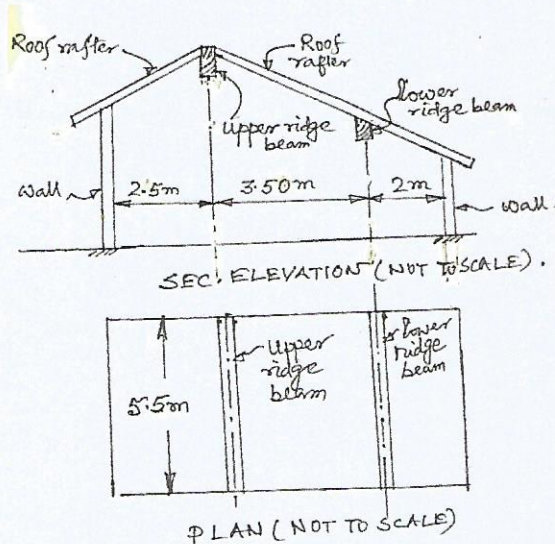 Roof rafter
Roof
rafter
lower
ridge beam
upper ridge
beam
wall
2.5m
3.50m
2m
wall
SEC. ELEVATION (NOT TO SCALE).
5.5m
Upper
ridge
beam
lower
ridge
beam
PLAN (NOT TO SCALE)